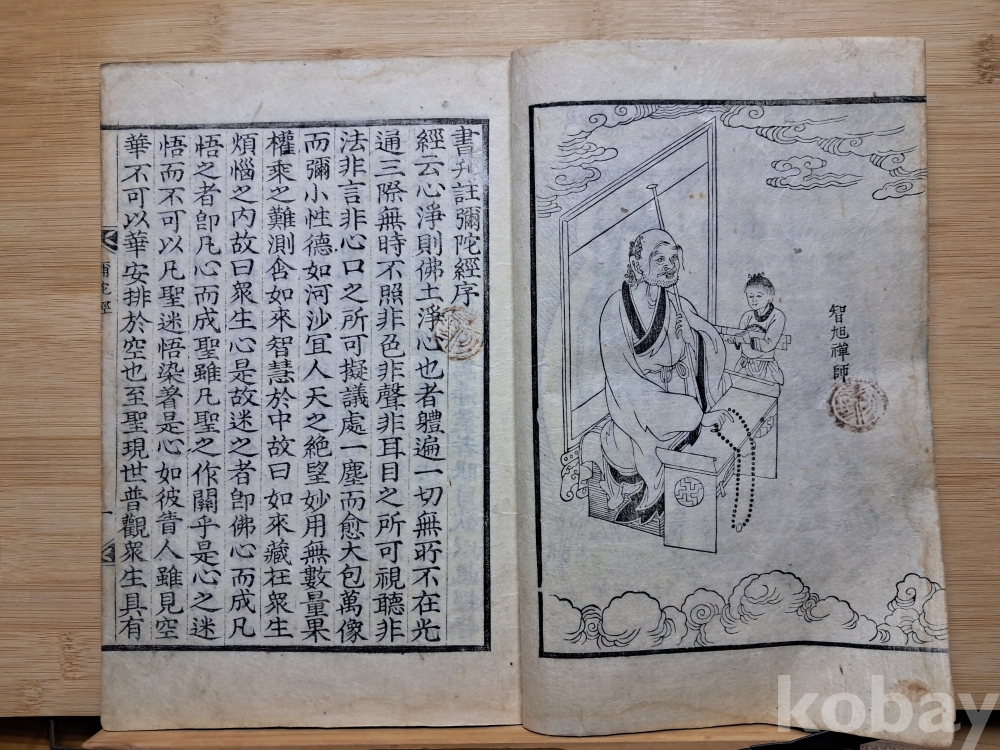 智旭禪師
書刋註彌陀經序
經云心淨則佛土淨心也者體遍一切無所不在光
通三際無時不照非色非聲非耳目之所可視聽非
法非言非心口之所可擬議處一塵而愈大包萬像
而彌小性德如河沙宜人天之絶望妙用無數量果
權乘之難測含如來智慧於中故曰如來藏在衆生
煩惱之内故曰衆生心是故迷之者卽佛心而成凡
悟之者卽凡心而成聖雖凡聖之作關乎是心之迷
悟而不可以凡聖迷悟染著是心如彼眚人雖見空
華不可以華安排於空也至聖現世普觀衆生具有
彌陀經
一
kobay